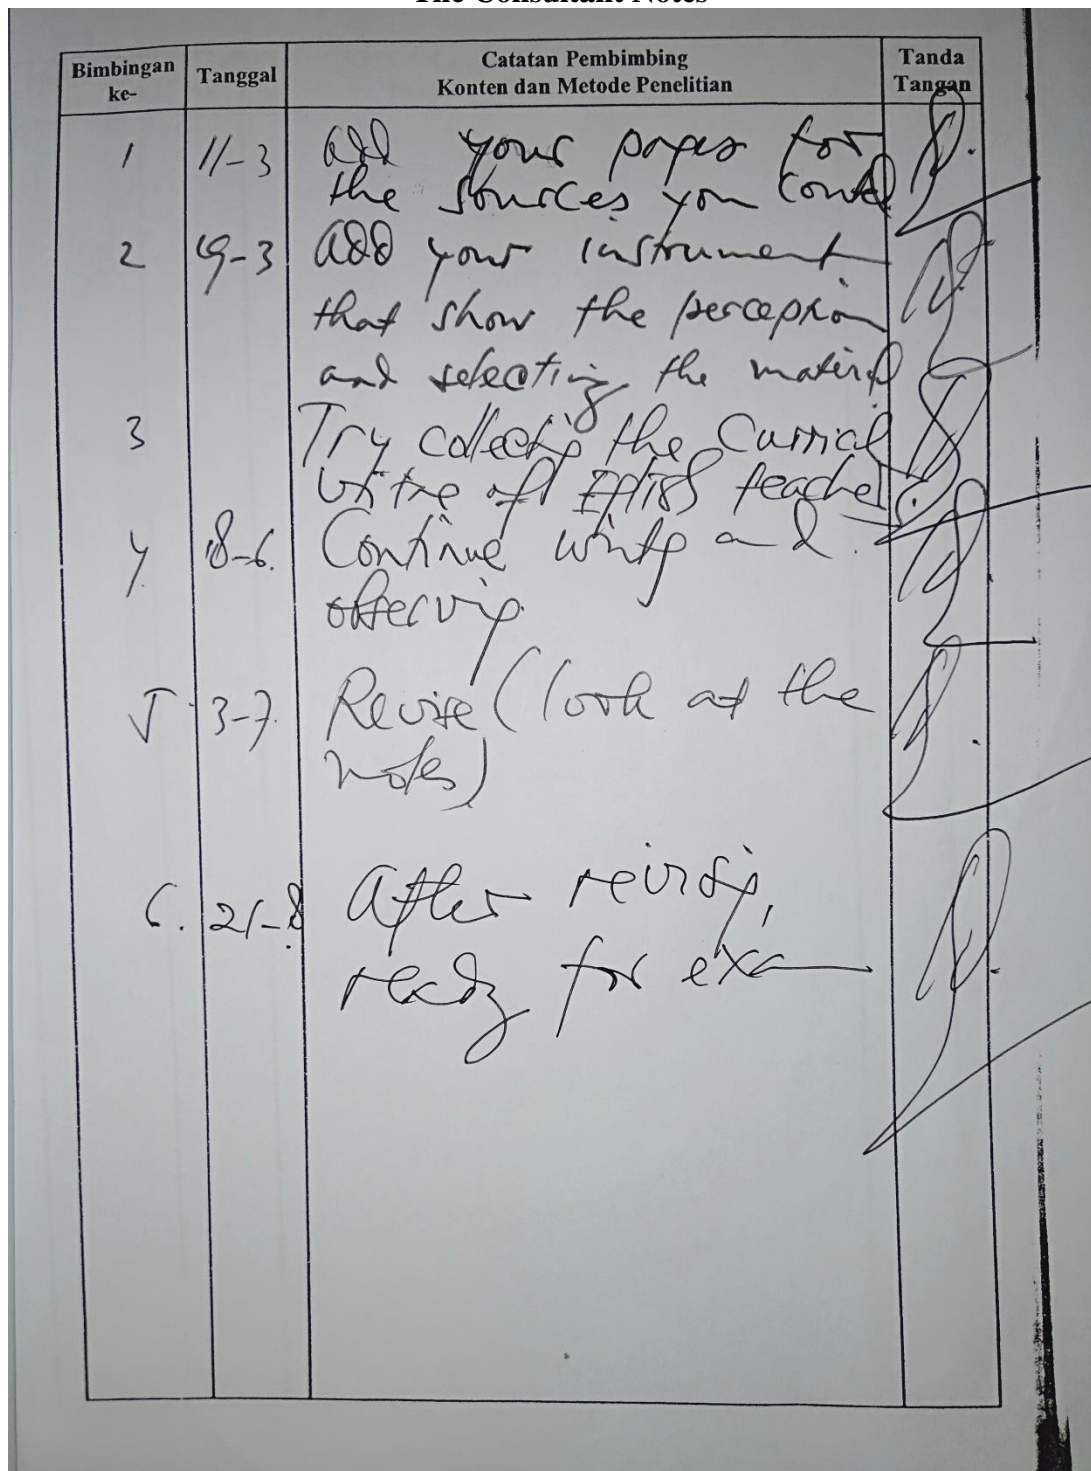 The Consultant Notes
Bimbingan ke-
Tanggal
Catatan Pembimbing
Konten dan Metode Penelitian
Tanda Tangan
1 11-3 add your pages for
the sources you
2 19-3 add your instrument
that show the perception
and selecting the material
3 Try collectig the Curricul
Vitae of teacher
4 18-6. Continue writig and
observig
5 3-7. Revise (look at the
notes)
6. 21-8 After revisig,
ready for exam